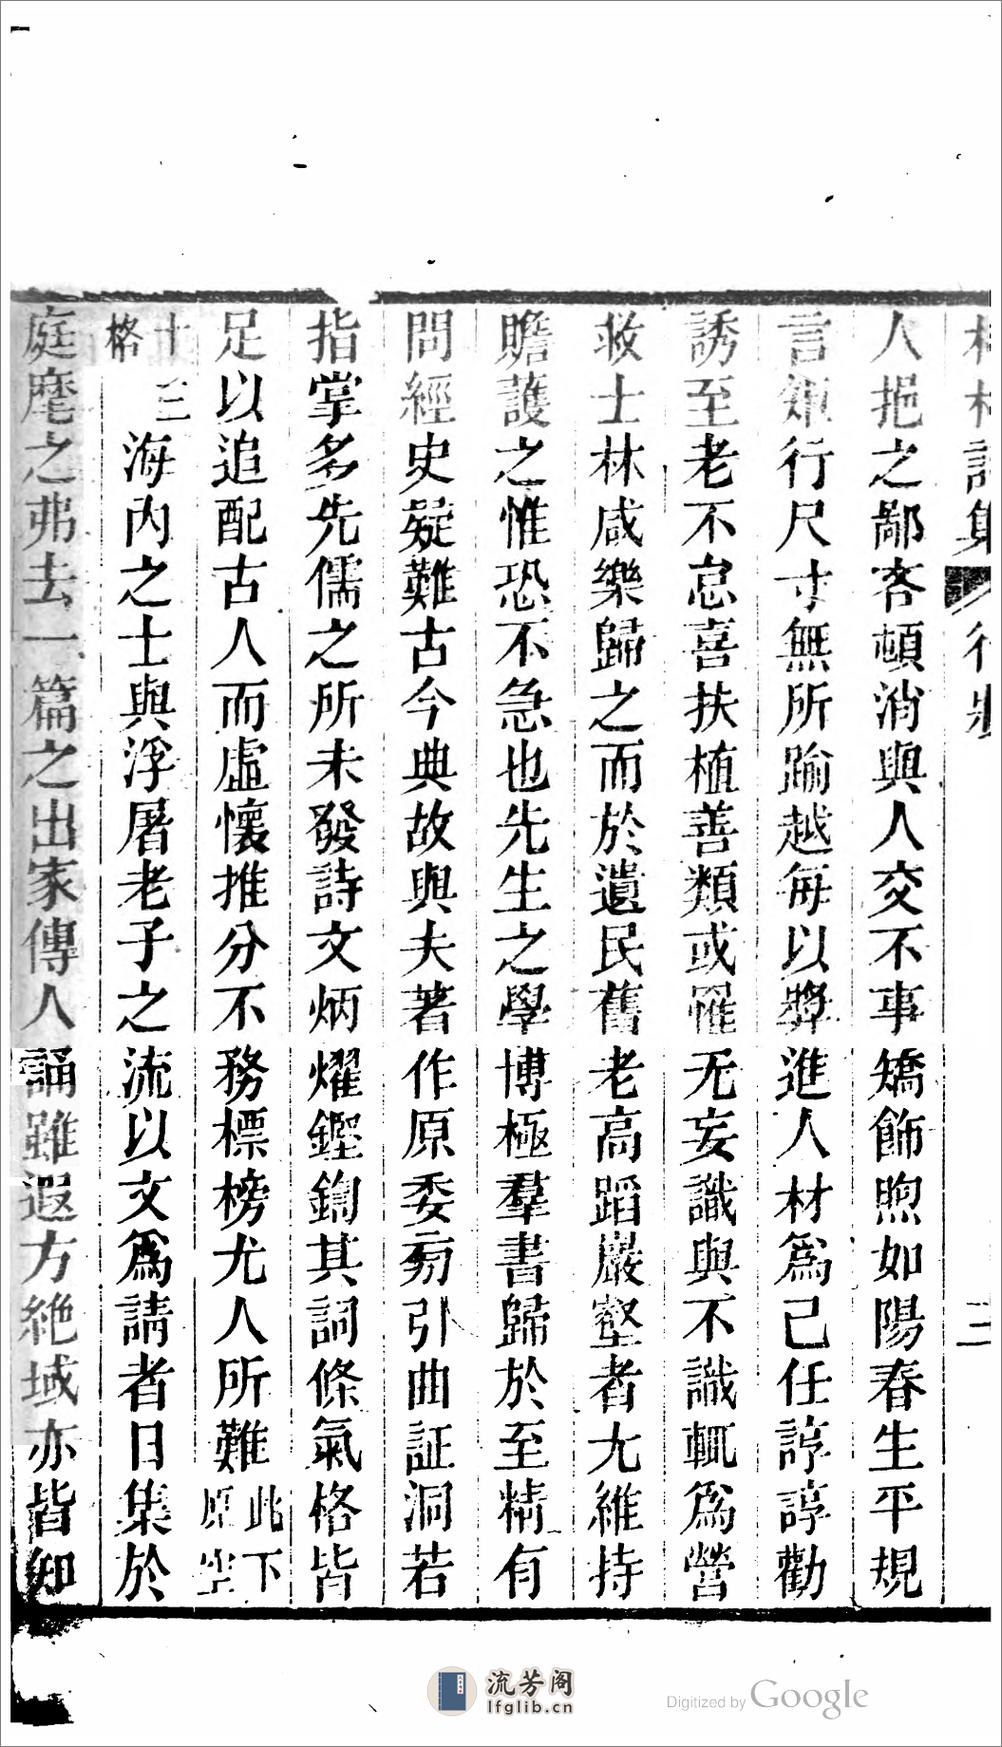 行狀
三
人挹之鄙吝頓消與人交不事矯飾煦如陽春生平規
言矩行尺寸無所踰越每以奬進人材爲己任諄諄勸
誘至老不怠喜扶植善類或罹无妄識與不識輒爲營
救士林咸樂歸之而於遺民舊老高蹈巖壑者尤維持
贍護之惟恐不急也先生之學博極羣書歸於至精有
問經史疑難古今典故與夫著作原委旁引曲証洞若
指掌多先儒之所未發詩文炳燿鏗鍧其詞條氣格皆
足以追配古人而虛懷推分不務標榜尤人所難此下原空
十三格海內之士與浮屠老子之流以文爲請者日集於
庭麾之弗去一篇之出家傳人誦雖遐方絶域亦皆知
流芳阁
lfglib.cn
Digitized by Google